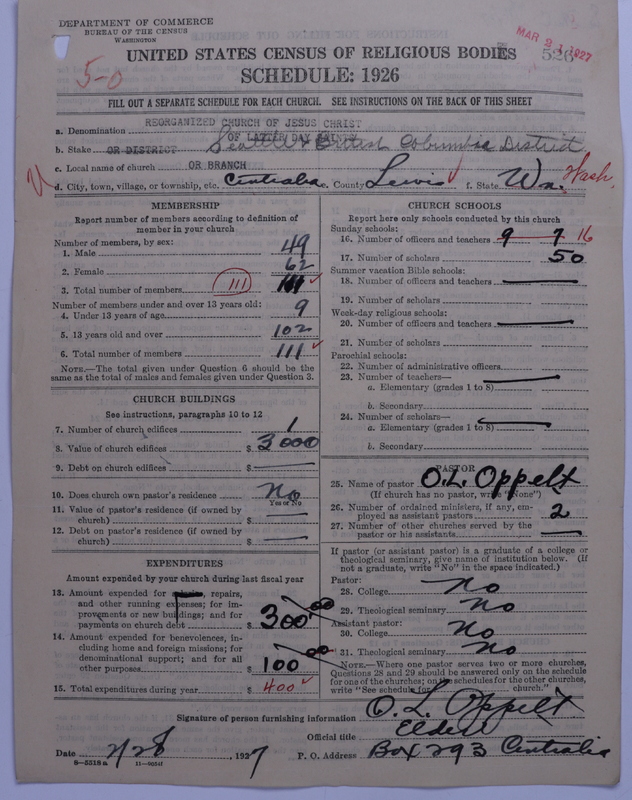 DEPARTMENT OF COMMERCE
BUREAU OF THE CENSUS
WASHINGTON
MAR 2 1927
526
5-0
UNITED STATES CENSUS OF RELIGIOUS BODIES
SCHEDULE: 1926
FILL OUT A SEPARATE SCHEDULE FOR EACH CHURCH. SEE INSTRUCTIONS ON THE BACK OF THIS SHEET
REORGANIZED CHURCH OF JESUS CHRIST
a. Denomination OF LATTER DAY SAINTS
b. Stake OR DISTRICT Seattle & British Columbia District
c. Local name of church OR BRANCH
d. City, town, village, or township, etc. Centralia e. County Lewis f. State Wn. Wash.
MEMBERSHIP
Report number of members according to definition of member in your church
Number of members, by sex:
1. Male 49
2. Female 62
3. Total number of members 111 111
Number of members under and over 13 years old:
4. Under 13 years of age 9
5. 13 years old and over 102
6. Total number of members 111
NOTE.—The total given under Question 6 should be same as the total of males and females given under Question 3.
CHURCH BUILDINGS
See instructions, paragraphs 10 to 12
7. Number of church edifices 1
8. Value of church edifices $ 3000
9. Debt on church edifices $
10. Does church own pastor's residence No
Yes or No
11. Value of pastor's residence (if owned by church) $
12. Debt on pastor's residence (if owned by church) $
EXPENDITURES
Amount expended by your church during last fiscal year
13. Amount expended for repairs, and other running expenses; for improvements or new buildings; and for payments on church debt $ 300 00
14. Amount expended for benevolences, including home and foreign missions; for denominational support; and for all other purposes $ 100 00
15. Total expenditures during year $ 400
CHURCH SCHOOLS
Report here only schools conducted by this church
Sunday schools:
16. Number of officers and teachers 9 7 16
17. Number of scholars 50
Summer vacation Bible schools:
18. Number of officers and teachers
19. Number of scholars
Week-day religious schools:
20. Number of officers and teachers
21. Number of scholars
Parochial schools:
22. Number of administrative officers
23. Number of teachers—
a. Elementary (grades 1 to 8)
b. Secondary
24. Number of scholars—
a. Elementary (grades 1 to 8)
b. Secondary
PASTOR
25. Name of pastor O.L. Oppelt
(If church has no pastor, write "None")
26. Number of ordained ministers, if any, employed as assistant pastors 2
27. Number of other churches served by the pastor or his assistants
If pastor (or assistant pastor) is a graduate of a college or theological seminary, give name of institution below. (If not a graduate, write "No" in the space indicated.)
Pastor:
28. College No
29. Theological seminary No
Assistant pastor:
30. College No
31. Theological seminary No
NOTE.—Where one pastor serves two or more churches, Questions 28 and 29 should be answered only on the schedule for one of the churches; on the schedules for the other churches, write "See schedule for church."
Signature of person furnishing information O. L. Oppelt
Official title Elder
Date 2/28, 1927 P. O. Address Box 293 Centralia
8—5518a 11—